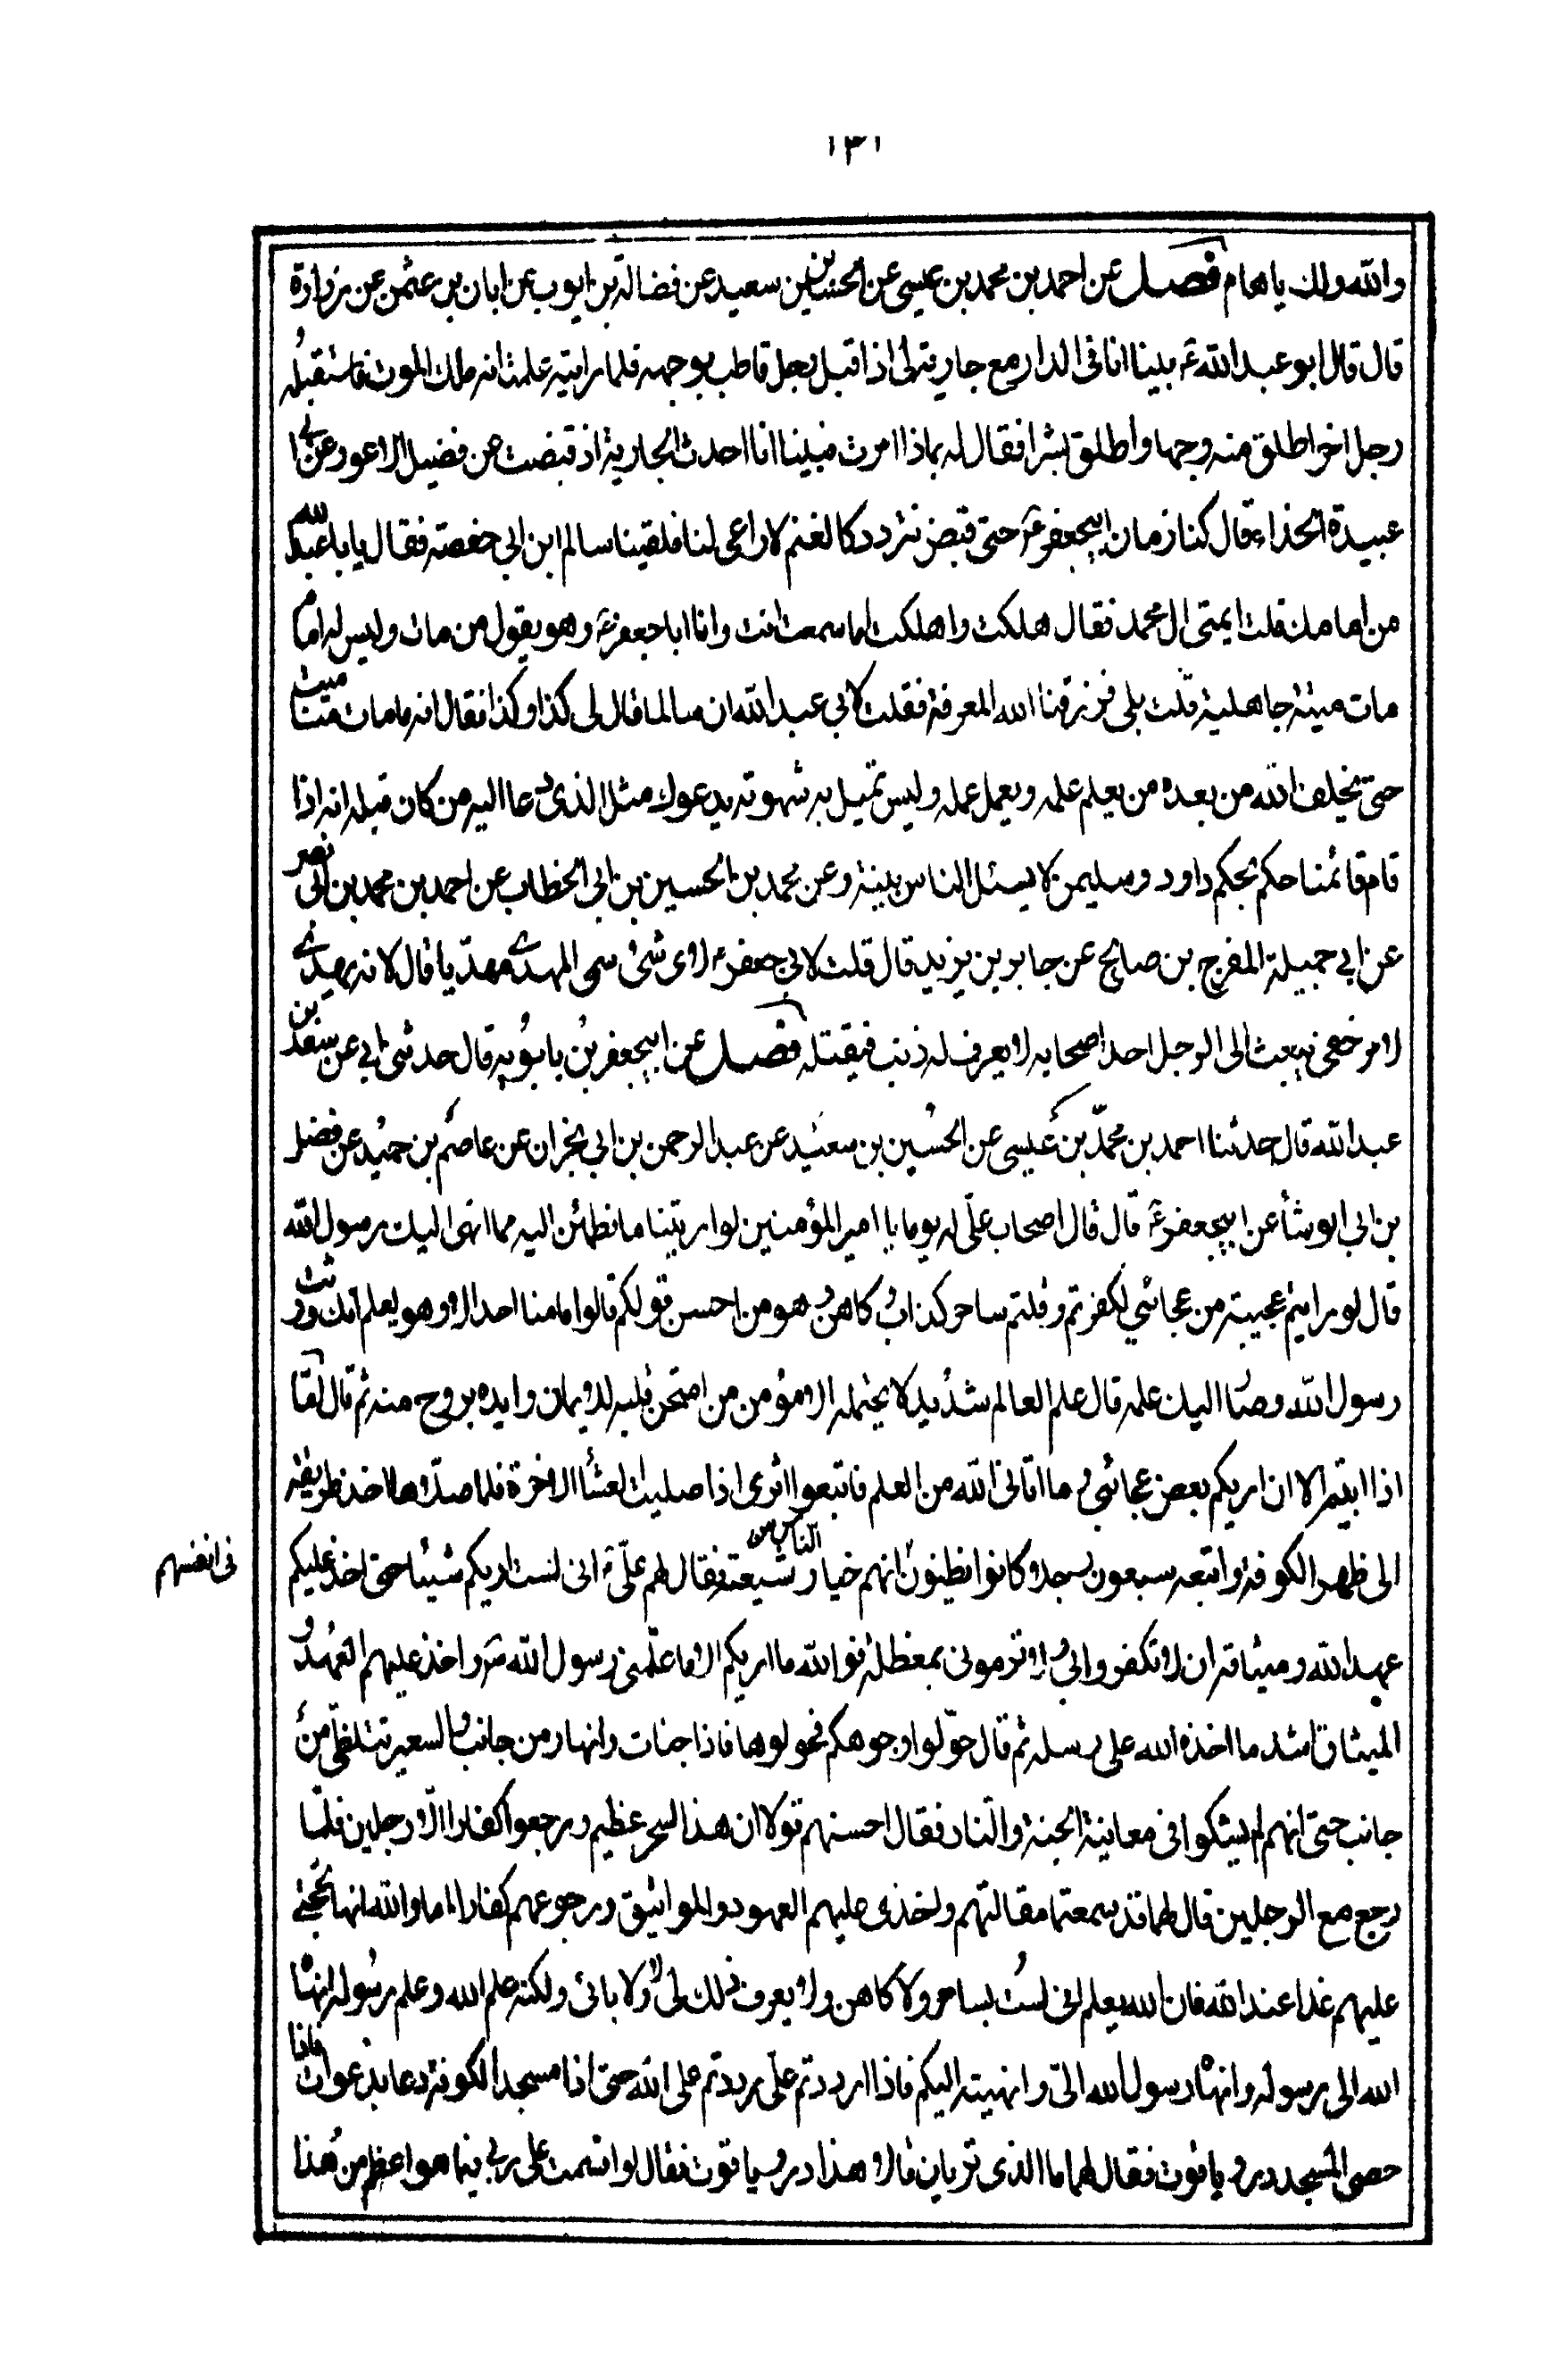 ١٣١
والله ولك ياهام فصل عن احمد بن محمد بن عيسى عن الحسين بن سعيد عن فضالة بن ايوب عن ابان بن عثمن عن زرارة
قال قال ابو عبد الله ع بينا انا في الدار مع جارية لى اذ اقبل رجل قاطب بوجهه فلما رايته علمت انه ملك الموت فاستقبله
رجل اخر اطلق منه وجها واطلق بشرا فقال له بماذا امرت فبينا انا احدث الجارية اذ قبضت عن فضيل الاعور عن ابى
عبيدة الحذاء قال كنا زمان ابيجعفر ع حتى قبض نتردد كالغنم لا راعى لنا فلقينا سالم ابن ابى حفصة فقال يا با عبيدة
من امامك قلت ايمتى ال محمد فقال هلكت واهلكت اما سمعت انت وانا ابا جعفر ع وهو يقول من مات وليس له امام
مات ميتة جاهلية قلت بلى فرزقنا الله المعرفة فقلت لابي عبد الله ان سالما قال لى كذا وكذا فقال انه ما مات منا ميت
حتى يخلف الله من بعده من يعلم علمه ويعمل عمله وليس تميل به شهوته يدعوك مثل الذى دعا اليه من كان قبله انه اذا
قام قائمنا حكم بحكم داود وسليمن لا يسئل الناس بينة وعن محمد بن الحسين بن ابى الخطاب عن احمد بن محمد بن ابى نصر
عن ابي جميلة المفرج بن صالح عن جابر بن يزيد قال قلت لابي جعفر ع لاى شئ سمى المهدى مهديا قال لانه يهدى
لامر خفى يبعث الى الرجل احد اصحابه لا يعرف له ذنب فيقتله فصل عن ابيجعفر بن بابويه قال حدثنى ابي عن سعد بن
عبد الله قال حدثنا احمد بن محمد بن عيسى عن الحسين بن سعيد عن عبد الرحمن بن ابي نجران عن عاصم بن حميد عن فضل
بن ابي ابو شا عن ابيجعفر ع قال قال اصحاب على له يوما يا امير المؤمنين لو اريتنا ما نطمئن اليه مما انهى اليك رسول الله
قال لو رايتم عجيبة من عجائبي لكفرتم وقلتم ساحر كذاب وكاهن وهو من احسن قولكم قالوا ما منا احد الا وهو يعلم انك ورثت
رسول الله وصار اليك علمه قال علم العالم شديد لا يحتمله الا مؤمن من امتحن قلبه للايمان وايده بروح منه ثم قال امّا
اذا ابيتم الا ان اريكم بعض عجائبي وما اتانى الله من العلم فاتبعوا اثرى اذا صليت العشا الاخرة فلما صلاها اخذ طريقه
الى ظهر الكوفة واتبعه سبعون رجلا كانوا يظنون انهم خيار الناس من شيعته فقال لهم على ع انى لست اريكم شيئا حتى اخذ عليكم
فى انفسهم
عهد الله وميثاقه ان لا تكفروا بي ولا ترمونى بمعظلة فو الله ما اريكم الا ما علمنى رسول الله ص واخذ عليهم العهد و
الميثاق اشد ما اخذه الله على رسله ثم قال حوّلوا وجوهكم فحولوها فاذا جنات وانهار من جانب والسعير تتلظى من
جانب حتى انهم لم يشكوا فى معاينة الجنة والنار فقال احسنهم قولا ان هذا لسحر عظيم ورجعوا كفارا الّا رجلين فلمّا
رجع مع الرجلين قال لهما قد سمعتما مقالتهم واخذى عليهم العهود والمواثيق ورجوعهم كفارا اما والله انها لحجتى
عليهم غدا عند الله فان الله يعلم انى لست بساحر ولا كاهن ولا يعرف ذلك لى ولا لابائى ولكنه علم الله وعلم رسوله انهاه
الله الى رسوله وانهاه رسول الله الىّ وانهيته اليكم فاذا رددتم علىّ رددتم على الله حتى اذا مسجد الكوفة دعا بدعوات فاذا
حصى المسجد در وياقوت فقال لهما ما الذى تريان قالا هذا در وياقوت فقال لو اقسمت على ربي فيما هو اعظم من هذا